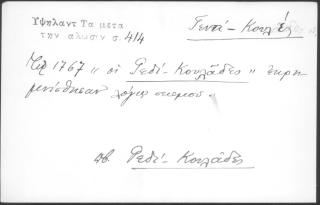 Υψηλαντ Τα μετα
την αλωσιν σ. 414
Γεντί-Κουλέ
Τῷ 1767 " οἱ Γεδί-Κουλᾶδες " ἐκρη
μνίσθησαν λόγῳ σεισμοῦ.
πβ. Γεδί-Κουλάδες